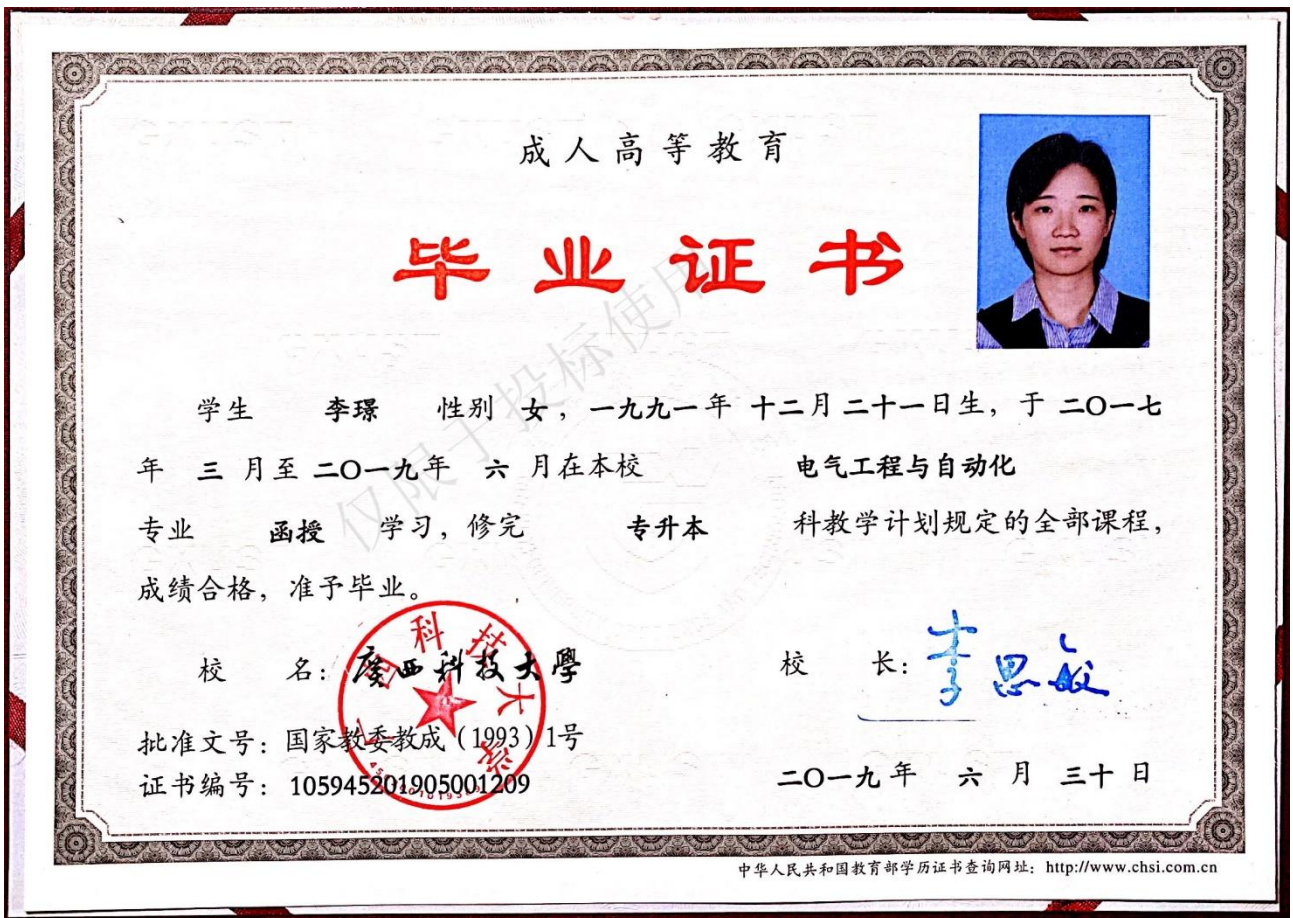 成人高等教育
毕业证书
学生 李璟 性别 女，一九九一年 十二月二十一日生，于 二〇一七
年 三 月至 二〇一九年 六 月在本校 电气工程与自动化
专业 函授 学习，修完 专升本 科教学计划规定的全部课程，
成绩合格，准予毕业。
校 名：廣西科技大學
校 长：李思敏
批准文号：国家教委教成（1993）1号
证书编号：105945201905001209
二〇一九年 六 月 三十 日
中华人民共和国教育部学历证书查询网址：http://www.chsi.com.cn
仅限于投标使用
广西科技大学